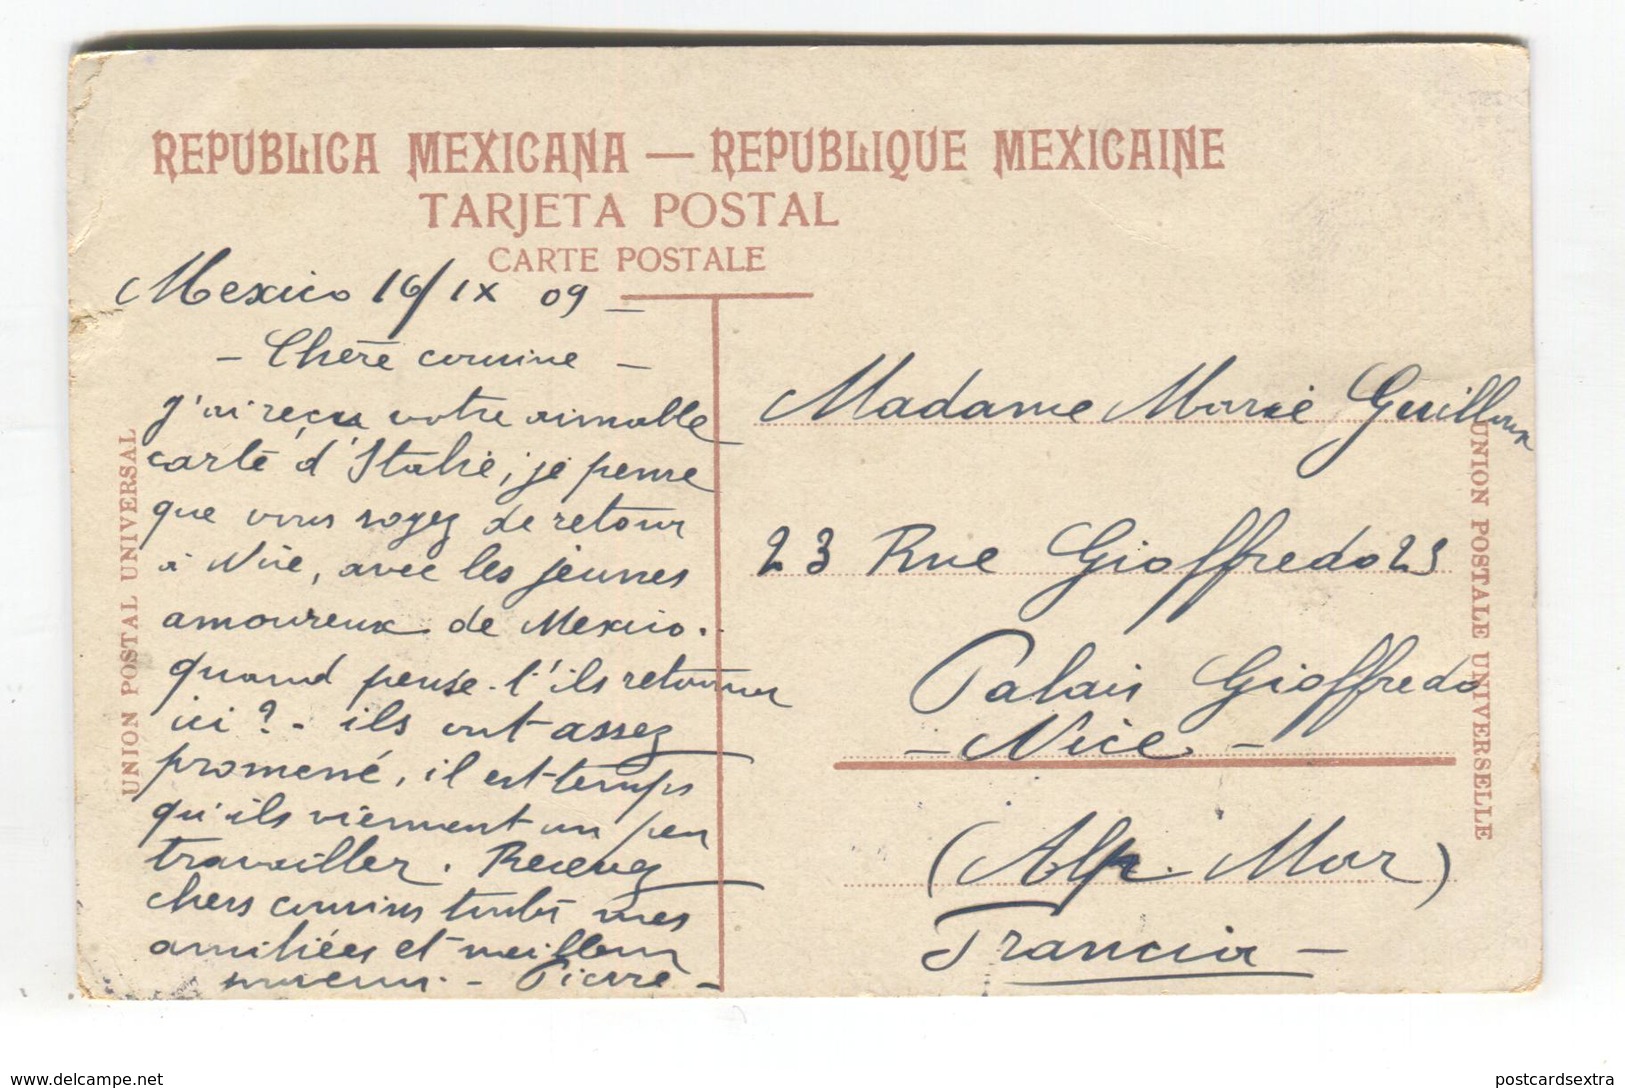 REPUBLICA MEXICANA — REPUBLIQUE MEXICAINE
TARJETA POSTAL
CARTE POSTALE
UNION POSTAL UNIVERSAL
Mexico 16/IX 09 –
– Chère cousine –
j'ai reçu votre aimable
carte d'Italie, je pense
que vous soyez de retour
à Nice, avec les jeunes
amoureux de Mexico.
quand pense-t'ils retourner
ici ? - ils ont assez
promené, il est temps
qu'ils viennent un peu
travailler. Recevez
chers cousins toutes mes
amitiées et meilleurs
Pierre –
Madame Marie Guilloux
23 Rue Gioffredo 23
Palais Gioffredo
– Nice –
(Alp. Mar)
Francia –
UNION POSTALE UNIVERSELLE
www.delcampe.net
postcardsextra